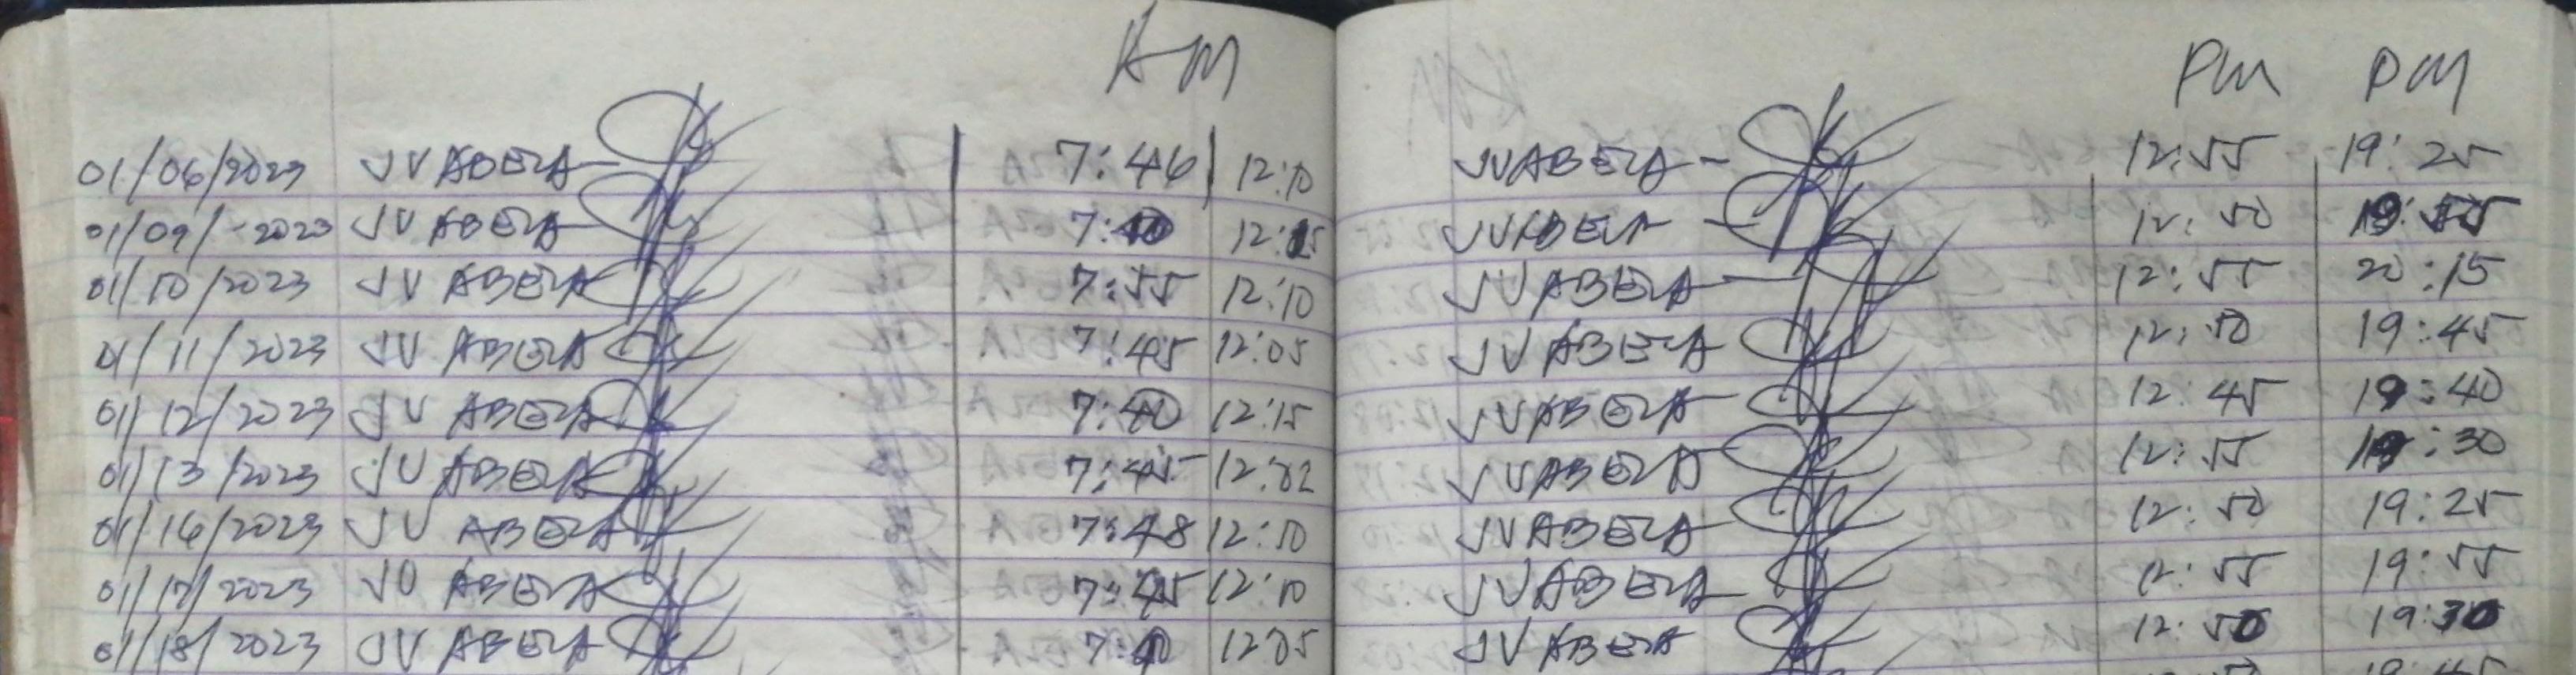 AM PM PM
01/06/2023 JV ABELA 7:46 12:10 JV ABELA 12:55 19:25
01/09/2023 JV ABELA 7:40 12:15 JV ABELA 12:50
01/10/2023 JV ABELA 7:55 12:10 JV ABELA 12:55 20:15
01/11/2023 JV ABELA 7:45 12:05 JV ABELA 12:50 19:45
01/12/2023 JV ABELA 7:40 12:15 JV ABELA 12:45 19:40
01/13/2023 JV ABELA 7:45 12:02 JV ABELA 12:55 19:30
01/16/2023 JV ABELA 7:48 12:10 JV ABELA 12:50 19:25
01/17/2023 JV ABELA 7:45 12:10 JV ABELA 12:55 19:55
01/18/2023 JV ABELA 7:40 12:05 JV ABELA 12:50 19:30